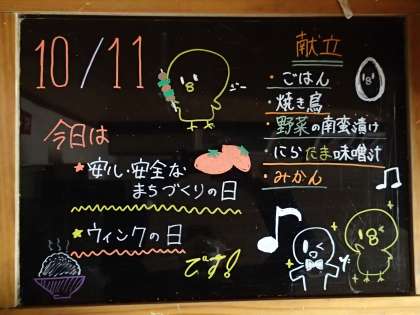 10/11
今日は
安心・安全な
まちづくりの日
ウィンクの日
です!
献立
・ごはん
・焼き鳥
・野菜の南蛮漬け
・にらたま味噌汁
・みかん
ジー